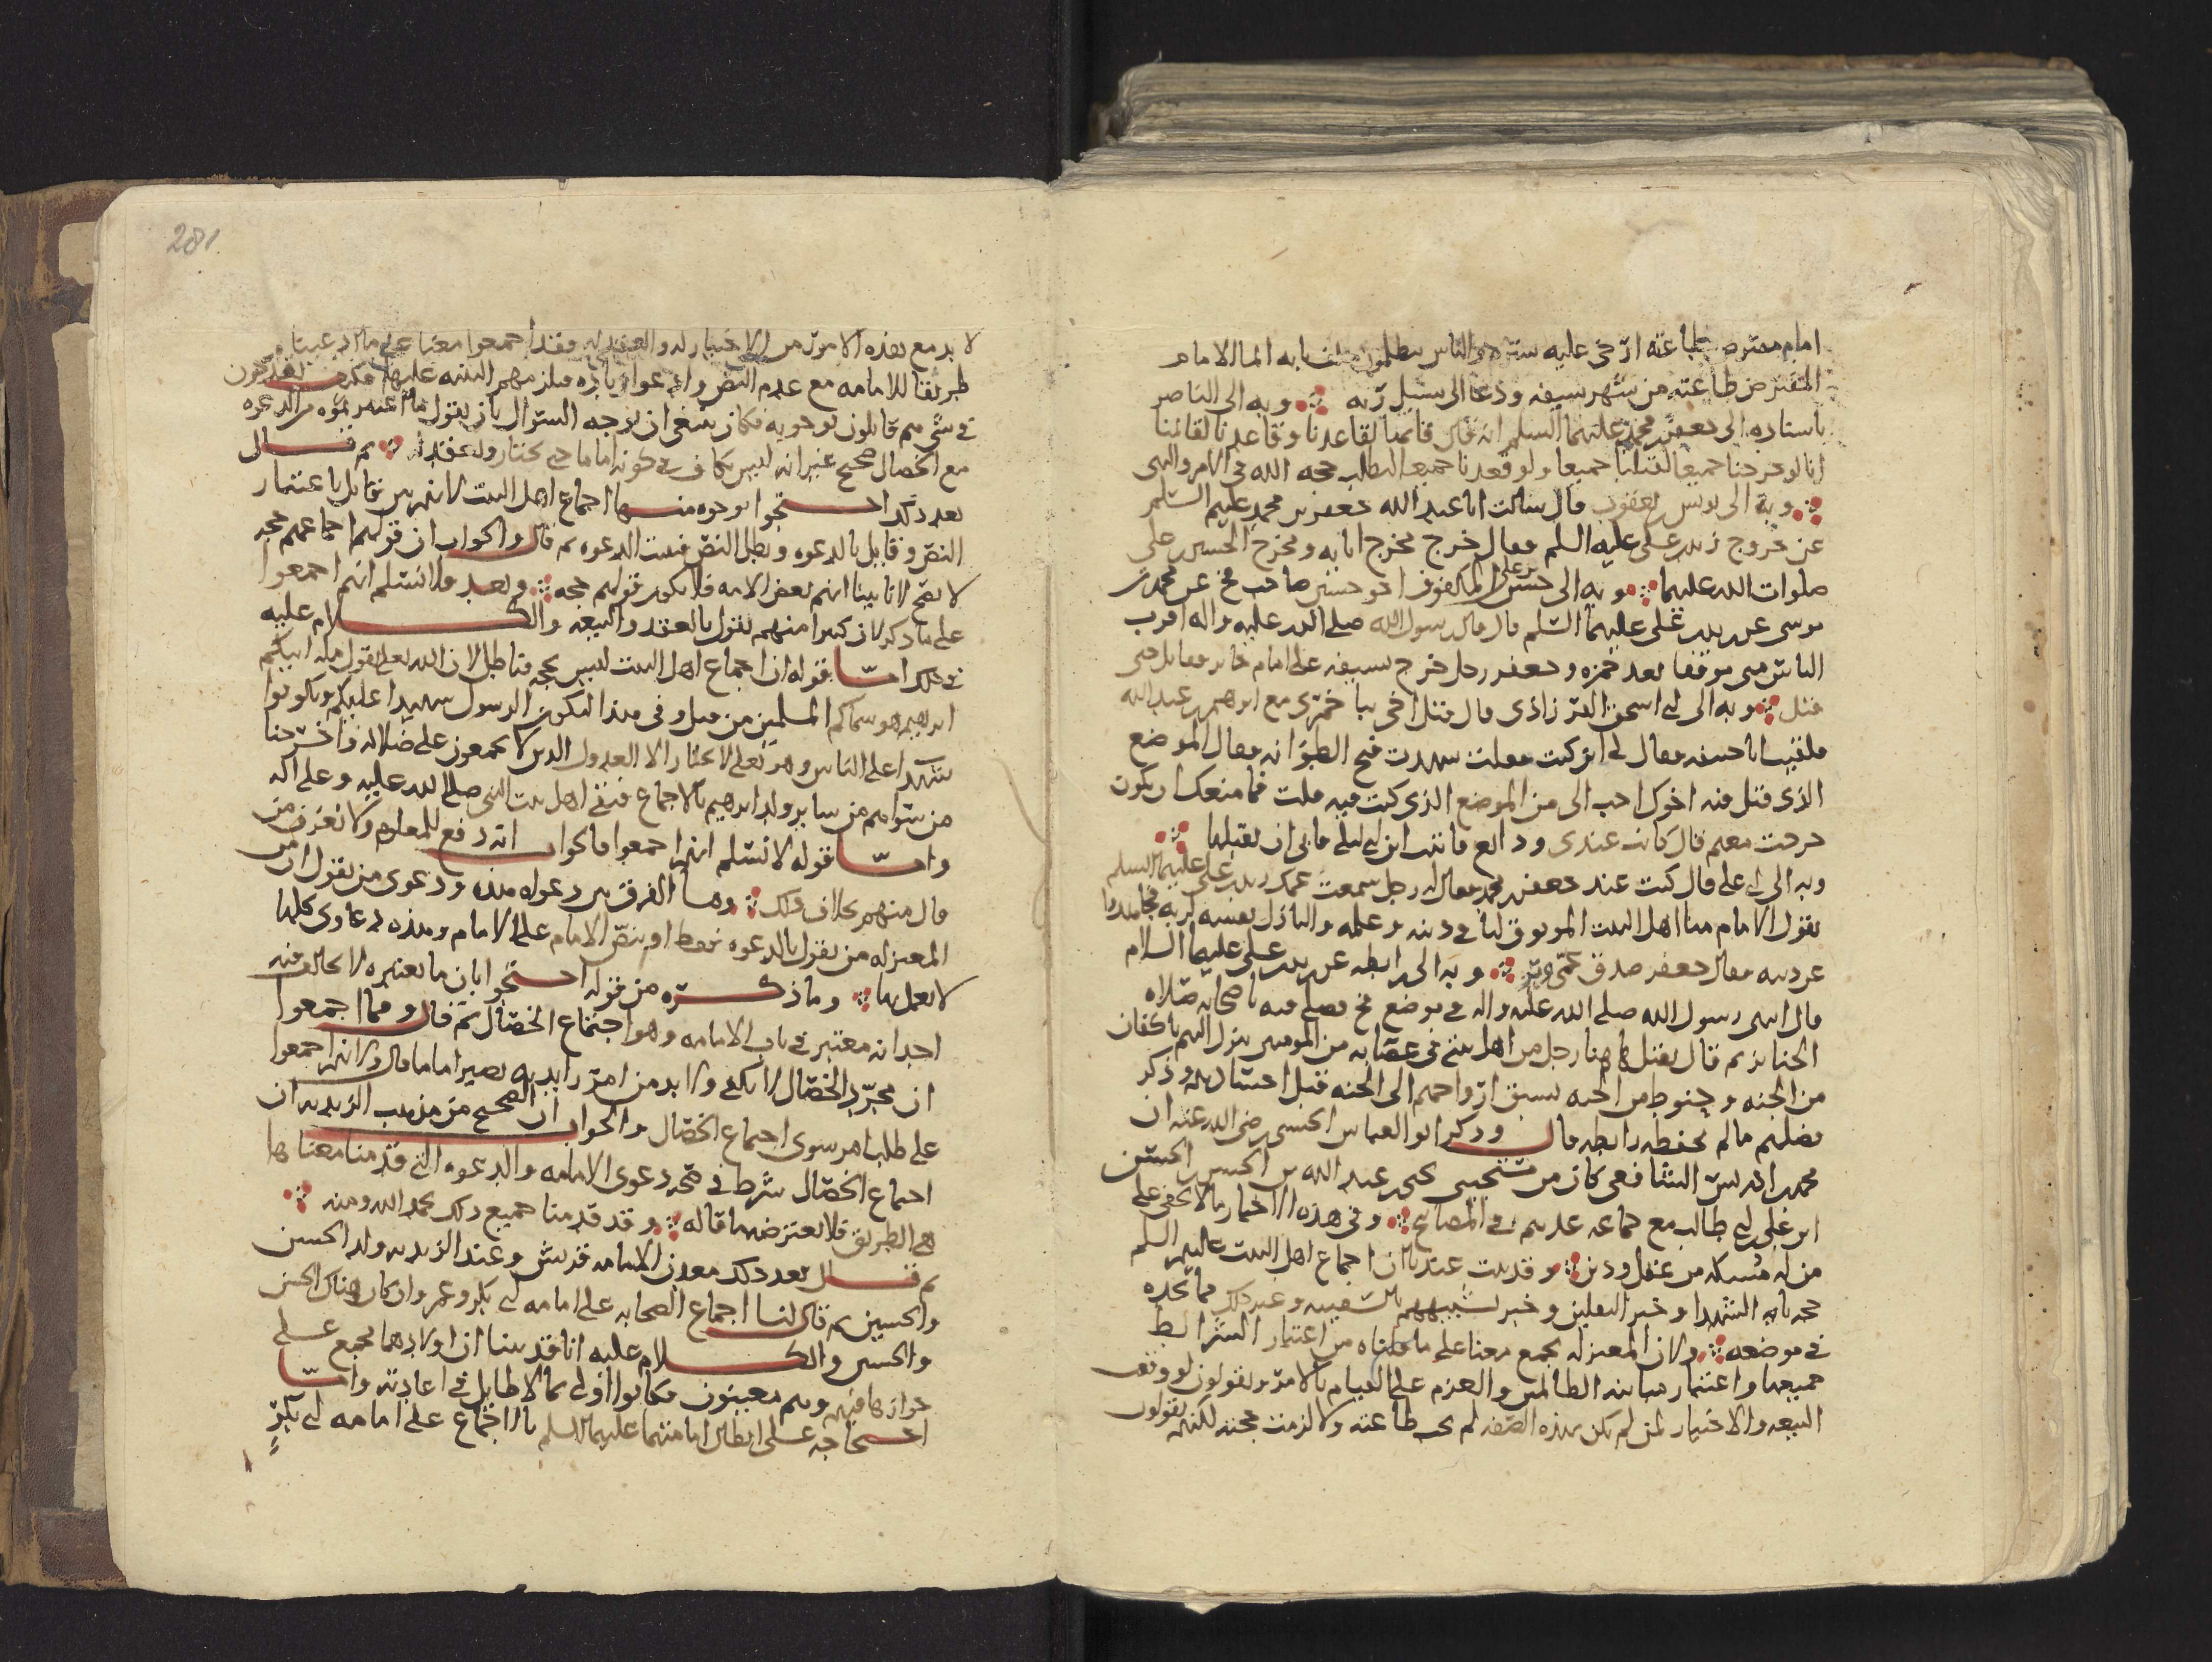 امام مفترض طاعته ارخى عليه ستره والناس يظلمون خلف بابه انما الامام
المفترض طاعته من شهر سيفه ودعا الى سبيل ربه وبه الى الناصر
باسناده الى جعفر بن محمد عليهما السلم انه قال قائمنا لقاعدنا وقاعدنا لقائمنا
انا لو خرجنا جميعا لقتلنا جميعا ولو قعدنا جميعا لبطلت حجه الله في الامر والنهى
وبه الى يونس بن يعقوب قال سالت ابا عبد الله جعفر بن محمد عليهم السلم
عن خروج زيد بن على عليه السلم فقال خرج مخرج ابائه ومخرج الحسين بن على
صلوات الله عليهما وبه الى حسن بن على المكفوف اخو حسين صاحب فخ عن محمد بن
موسى عن زيد بن على عليهما السلم قال قال رسول الله صلى الله عليه واله اقرب
الناس منى موقفا بعد حمزه وجعفر رجل خرج بسيفه على امام جائر فقاتل حتى
قتل وبه الى ابى اسحق الفزارى قال قتل اخى بباخمرى مع ابرهيم بن عبد الله
فلقيت ابا حنيفه فقال لى اين كنت فقلت شهدت فتح الطوانه فقال الموضع
الذى قتل فيه اخوك احب الى من الموضع الذى كنت فيه قلت فما منعك ان تكون
خرجت معهم قال كانت عندى ودائع فاتيت ابن ابى ليلى فابى ان يقبلها
وبه الى ابى على قال كنت عند جعفر بن محمد فقال له رجل سمعت عمك زيد بن على عليهم السلم
يقول الامام منا اهل البيت الموثوق لنا في دينه وعلمه والباذل نفسه لربه مجاهدا
عن دينه فقال جعفر صدق عمى وبر وبه الى رابطه عن زيد بن على عليهما السلام
قال انتهى رسول الله صلى الله عليه واله في موضع فخ فصلى فيه باصحابه صلاه
الجنايز ثم قال يقتل هاهنا رجل من اهل بيتى في عصابه من المومنين ينزل اليهم باكفان
من الجنه وحنوط من الجنه يسبق ارواحهم الى الجنه قبل اجسادهم وذكر
فضلهم ما لم يحفظه رابطه قال وذكر ابو العباس الحسنى رضى الله عنه ان
محمد بن ادريس الشافعى كان من مستجيبى يحيى بن عبد الله بن الحسن بن الحسن
ابن على بن ابى طالب مع جماعه عدهم في المصابيح وفي هذه الاخبار ما لا يخفى على
من له مسكه من عقل ودين وقد ثبت عندنا ان اجماع اهل البيت عليهم السلم
حجه بايه الشهدا وخبر الثقلين وخبر تشبيههم بالسفينه وغير ذلك مما نحده
في موضعه ولان المعتزله تجمع معنا على ما حكيناه من اعتبار الشرايط
جميعها واعتبار مباينه الظالمين والعزم على القيام بالامر ويقولون لو وقف
البيعه والاختيار لمن لم يكن بهذه الصفه لم تجب طاعته ولا لزمت محبته لكنهم يقولون
281
لا بد مع هذه الامور من الاختيار له والعقد له فقد اجمعوا معنا على ما ادعيناه
طريقا للامامه مع عدم النص وادعوا زياده فيلزمهم البينه عليها فكيف يقدحون
في شى هم قايلون بوجوبه فكان ينبغى ان يوجه السؤال بان يقول ما اعتبرتموه من الدعوه
مع الخصال صحيح غير انه ليس بكاف في كونه اماما حتى يختار ويعقد له ثم قال
بعد ذلك احتجوا بوجوه منها اجماع اهل البيت لانهم بين قايل باعتبار
النص وقايل بالدعوه وبطل النص فثبت الدعوه ثم قال والجواب ان قولهم اجماعهم حجه
لا يصح لانا بينا انهم بعض الامه فلا يكون قولهم حجه وبعد فلا نسلم انهم اجمعوا
على ما ذكر لان كثيرا منهم يقول بالعقد والبيعه والكلام عليه
في ذلك اما قوله ان اجماع اهل البيت ليس بحجه فباطل لان الله تعالى يقول مله ابيكم
ابرهيم هو سماكم المسلمين من قبل وفي هذا ليكون الرسول شهيدا عليكم وتكونوا
شهدا على الناس وهو تعالى لا يختار الا العدول الذين لا يجمعون على ضلاله واخرجنا
من سواهم من ساير ولد ابرهيم بالاجماع فبقى اهل بيت النبى صلى الله عليه وعلى اله
واما قوله لا نسلم انهم اجمعوا فالجواب انه دفع للمعلوم ولا نعرف من
قال منهم بخلاف ذلك وما الفرق بين دعواه هذه ودعوى من يقول ان من
المعتزله من يقول بالدعوه فقط او بنص الامام على الامام وهذه دعاوى كلها
لا يعمل بها وما ذكره من قوله احتجوا بان ما يعتبره لا يخالف فيه
احد انه معتبر في باب الامامه وهو اجتماع الخصال ثم قال ومما اجمعوا
ان مجرد الخصال لا يكفى ولا بد من امر زايد به يصير اماما قال ولانهم اجمعوا
على طلب امر سوى اجتماع الخصال والجواب ان الصحيح من مذهب الزيديه ان
اجتماع الخصال شرط في صحه دعوى الامامه والدعوه التى قدمنا معناها
هى الطريق فلا يعترض بما قاله وقد قدمنا جميع ذلك بحمد الله ومنه
ثم قال بعد ذلك معدن الامامه قريش وعند الزيديه ولد الحسن
والحسين ثم قال لنا اجماع الصحابه على امامه ابى بكر وعمر وان كان هناك الحسن
والحسين والكلام عليه انا قد بينا ان اولادهما مجمع على
جوازها فيهم وهم معينون فكانوا اولى بما لا طايل في اعادته واما
احتجاجه على ابطال امامتهما عليهما السلم بالاجماع على امامه ابى بكر